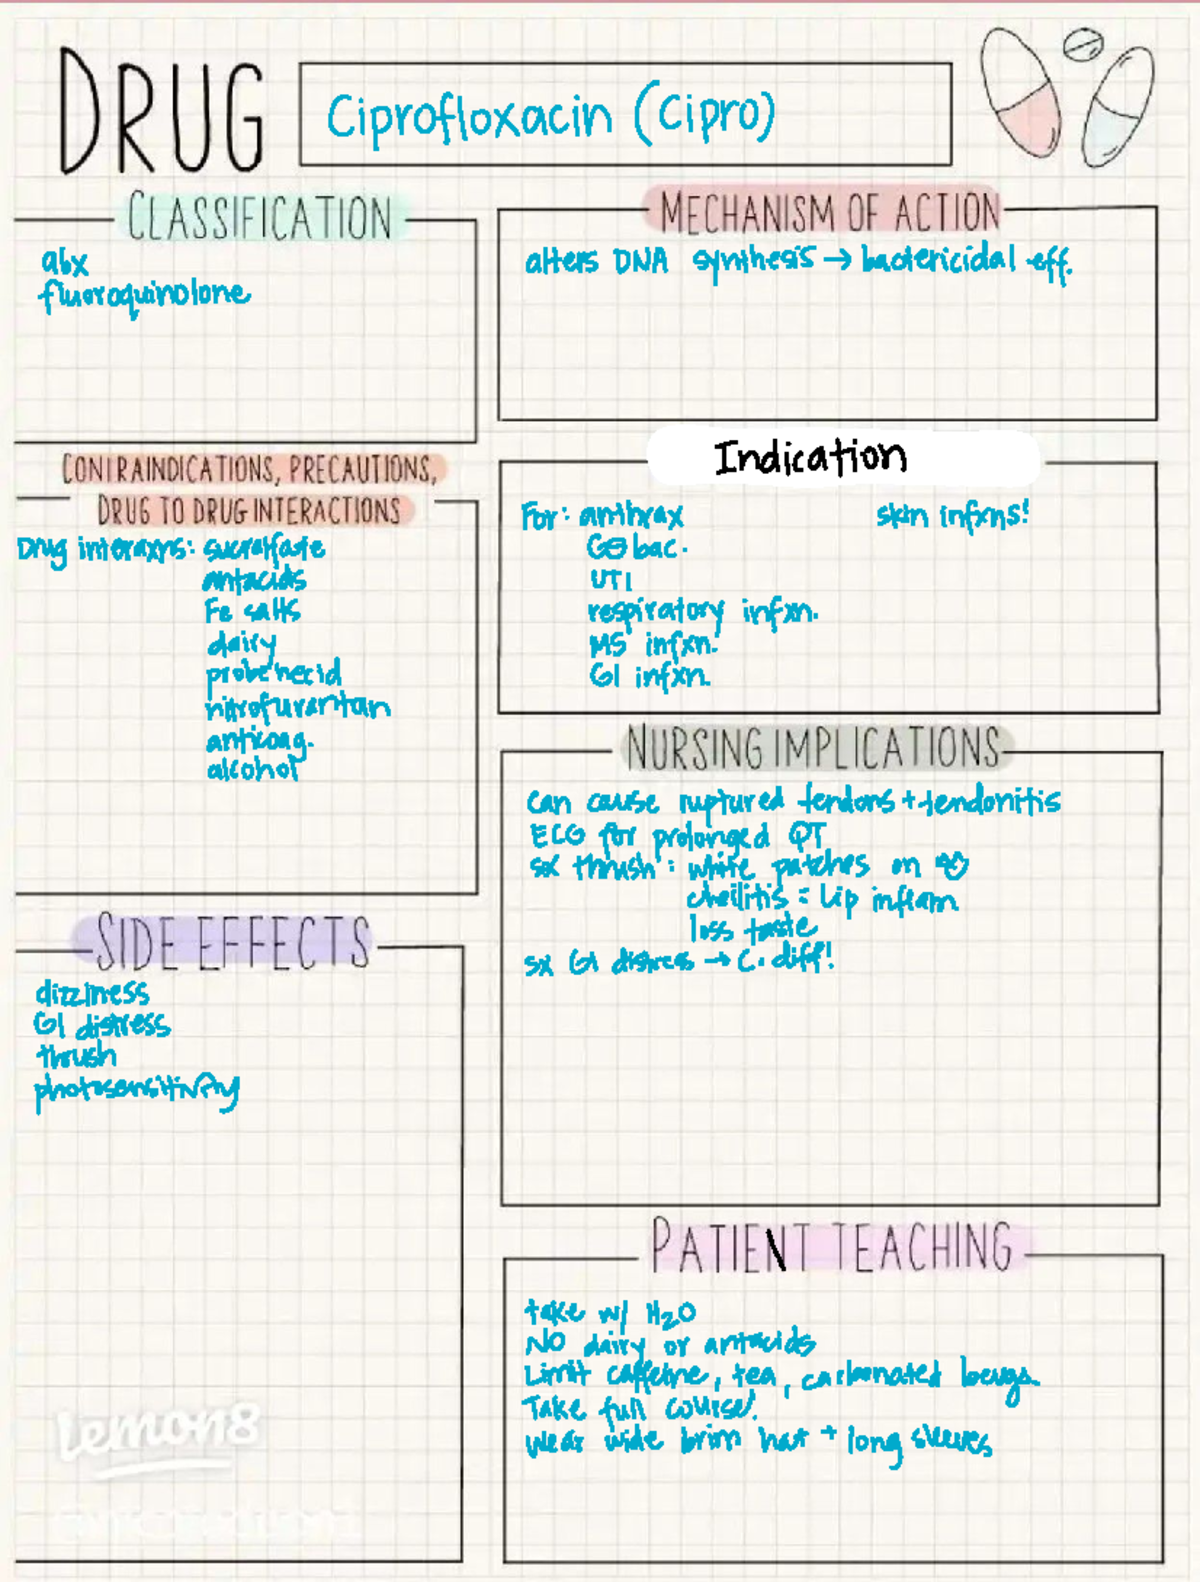 DRUG
Ciprofloxacin (Cipro)
CLASSIFICATION
abx
fluoroquinolone
MECHANISM OF ACTION
alters DNA synthesis → bactericidal eff.
CONTRAINDICATIONS, PRECAUTIONS,
DRUG TO DRUG INTERACTIONS
Drug interaxns: sucralfate
antacids
Fe salts
dairy
probenecid
nitrofurantan
anticoag.
alcohol
Indication
For: anthrax
G⊖ bac.
UTI
respiratory infxn.
MS infxn.
GI infxn.
skin infxns!
SIDE EFFECTS
dizziness
GI distress
thrush
photosensitivity
NURSING IMPLICATIONS
can cause ruptured tendons + tendonitis
ECG for prolonged QT
sx thrush: white patches on
cheilitis = lip inflam
loss taste
sx GI distress → c. diff!
PATIENT TEACHING
take w/ H2O
NO dairy or antacids
Limit caffeine, tea, carbonated bevgs.
Take full course!
Wear wide brim hat + long sleeves
Lemon8